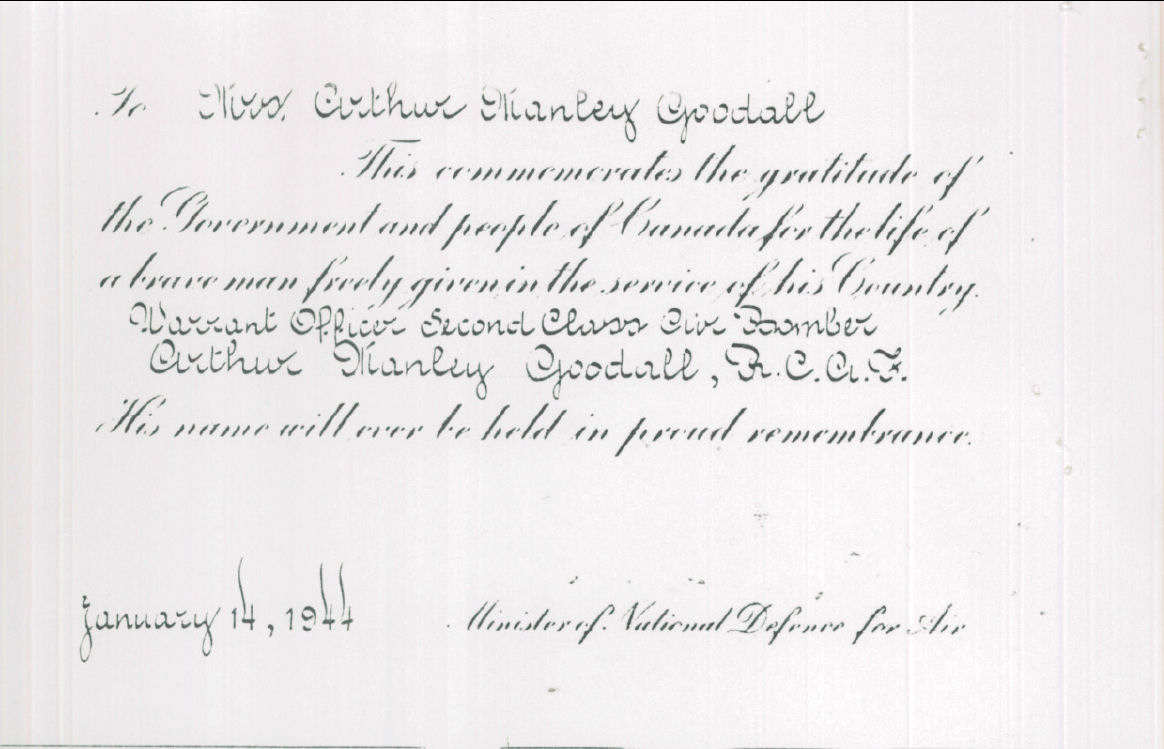 To Mrs. Arthur Manley Goodall
This commemorates the gratitude of
the Government and people of Canada for the life of
a brave man freely given in the service of his Country.
Warrant Officer Second Class Air Bomber
Arthur Manley Goodall, R.C.A.F.
His name will ever be held in proud remembrance.
January 14, 1944 Minister of National Defence for Air